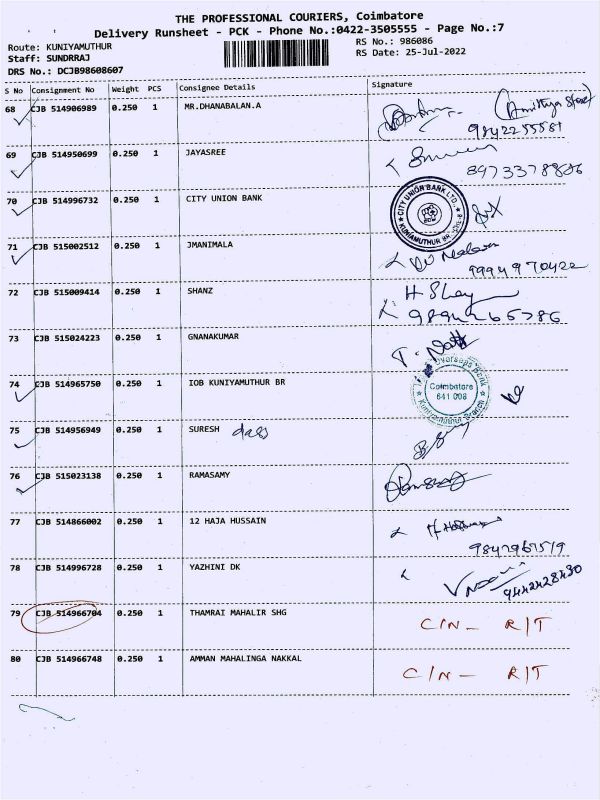 THE PROFESSIONAL COURIERS, Coimbatore
Delivery Runsheet - PCK - Phone No.:0422-3505555 - Page No.:7
Route: KUNIYAMUTHUR RS No.: 986086
Staff: SUNDRRAJ RS Date: 25-Jul-2022
DRS No.: DCJB98608607
S No Consignment No Weight PCS Consignee Details Signature
68 CJB 514906989 0.250 1 MR.DHANABALAN.A
9842255581
69 CJB 514950699 0.250 1 JAYASREE
8973378886
70 CJB 514996732 0.250 1 CITY UNION BANK
CITY UNION BANK LTD.,
KUNIAMUTHUR BR.
71 CJB 515002512 0.250 1 JMANIMALA
9994970422
72 CJB 515009414 0.250 1 SHANZ
73 CJB 515024223 0.250 1 GNANAKUMAR
74 CJB 514965750 0.250 1 IOB KUNIYAMUTHUR BR
Overseas Bank
Coimbatore
641 008
75 CJB 514956949 0.250 1 SURESH dass
76 CJB 515023138 0.250 1 RAMASAMY
77 CJB 514866002 0.250 1 12 HAJA HUSSAIN
9847967519
78 CJB 514996728 0.250 1 YAZHINI DK
9442428430
79 CJB 514966704 0.250 1 THAMRAI MAHALIR SHG C/N - R/T
80 CJB 514966748 0.250 1 AMMAN MAHALINGA NAKKAL C/N - R/T